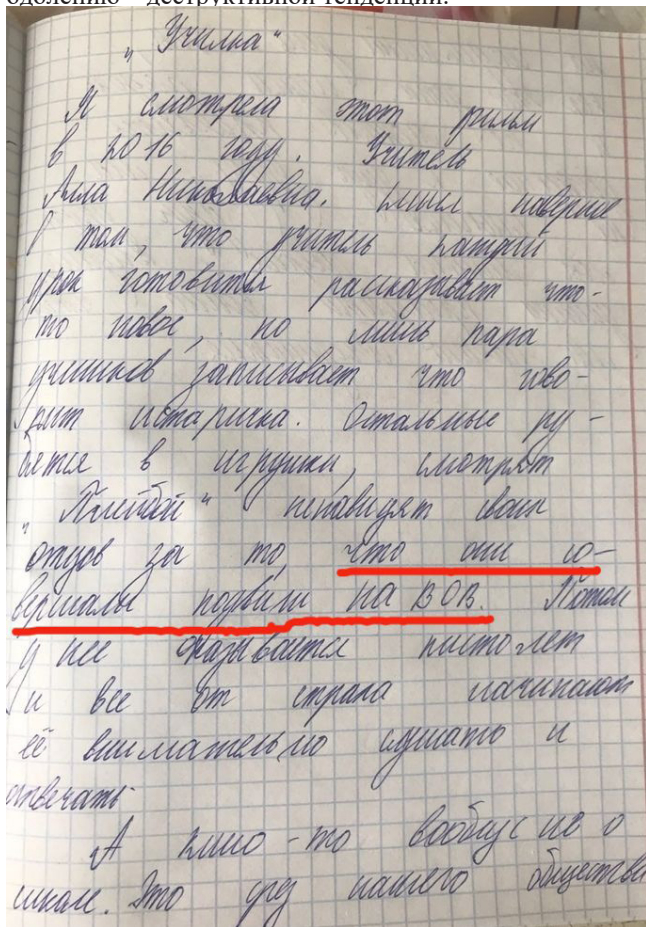 одолению деструктивной тенденции.
„Училка“
Я смотрела этот фильм
в 2016 году. Учитель
Алла Николаевна. Смысл наверное
в том, что учитель каждый
урок готовится рассказывает что-
то новое, но лишь пара
учеников записывает что гово-
рит историчка. Остальные ру-
бятся в игрушки, смотрят
„Плейбой“ ненавидят своих
отцов за то, что они со-
вершали подвиги на ВОВ. Потом
у нее оказывается пистолет
и все от страха начинают
её внимательно слушать и
отвечать.
А кино-то вообще не о
школе. Это срез нашего общества